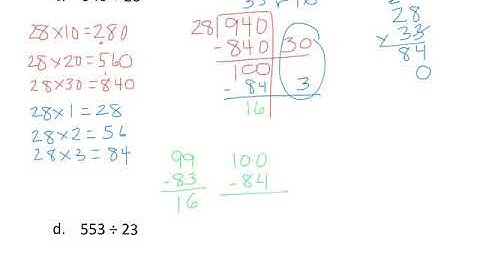 28×10=280
28×20=560
28×30=840
28×1=28
28×2=56
28×3=84
28 940
-840 30
100
- 84 3
16
28
× 33
84
0
99
-83
16
100
-84
d. 553 ÷ 23